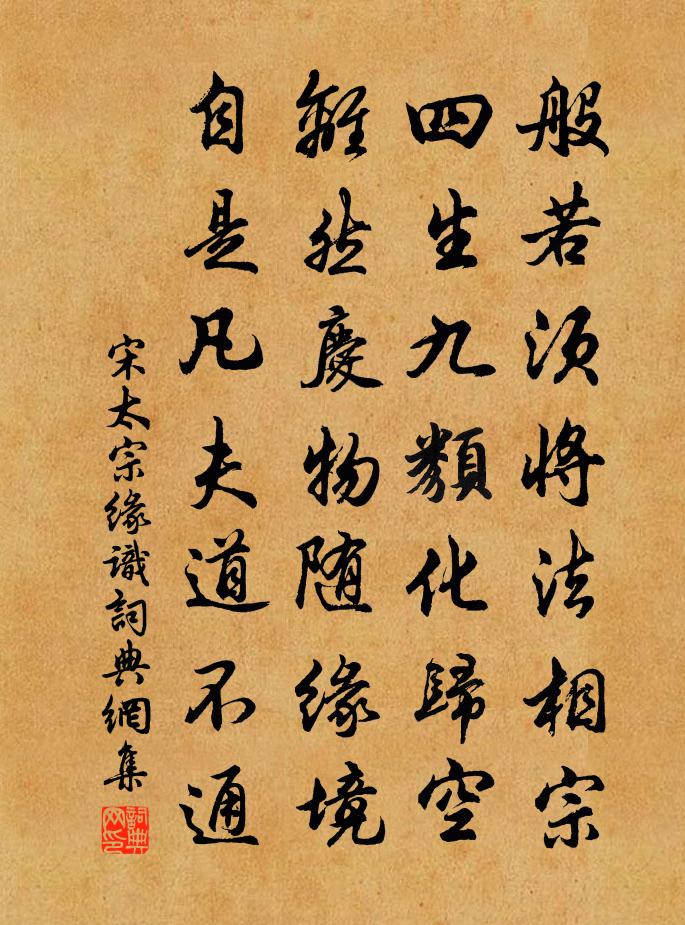 般若須将法相宗
四生九類化歸空
雖然慶物随緣境
自是凡夫道不通
宋太宗緣識詞典網集
詞典网印